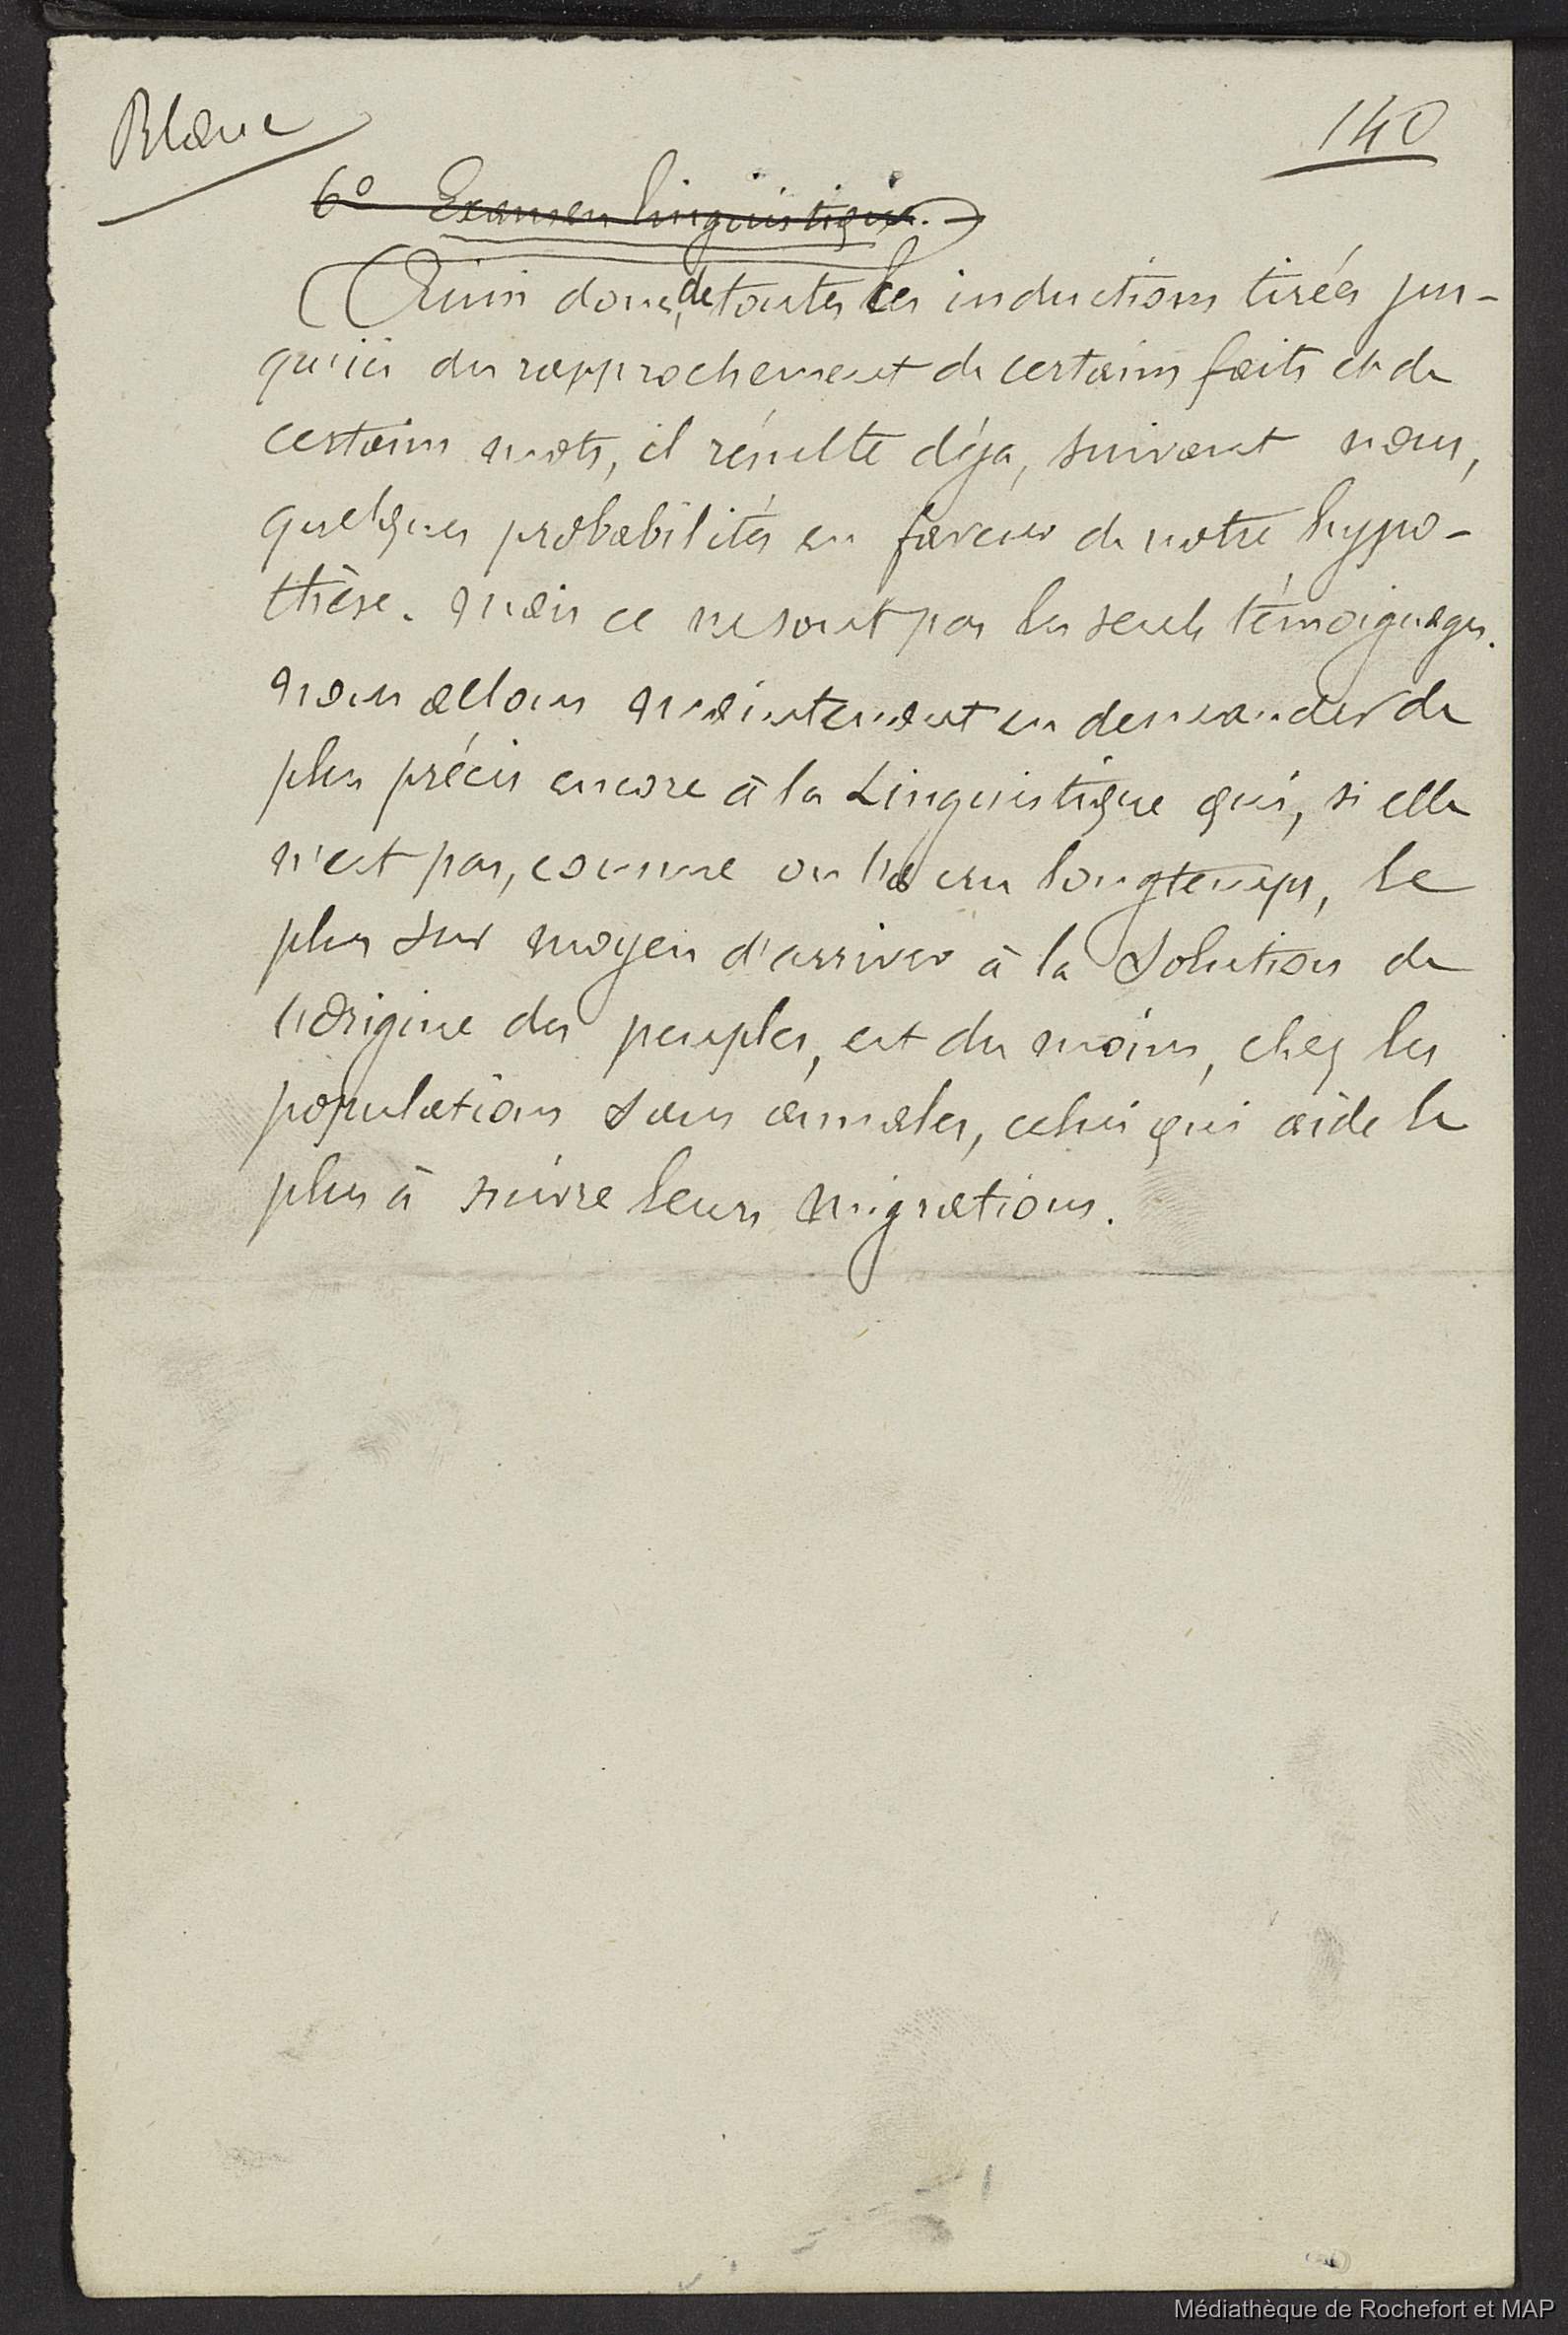 Blanc
140
6° Examen linguistique.
Ainsi donc, de toutes les inductions tirées jus-
qu'ici du rapprochement de certains faits et de
certains mots, il résulte déja, suivant nous,
quelques probabilités en faveur de notre hypo-
thèse. Mais ce ne sont pas les seuls témoignages.
Nous allons maintenant en demander de
plus précis encore à la Linguistique qui, si elle
n'est pas, comme on l'a cru longtemps, le
plus sur moyen d'arriver à la solution de
l'origine des peuples, est du moins, chez les
populations sans annales, celui qui aide le
plus à suivre leurs migrations.
Médiathèque de Rochefort et MAP